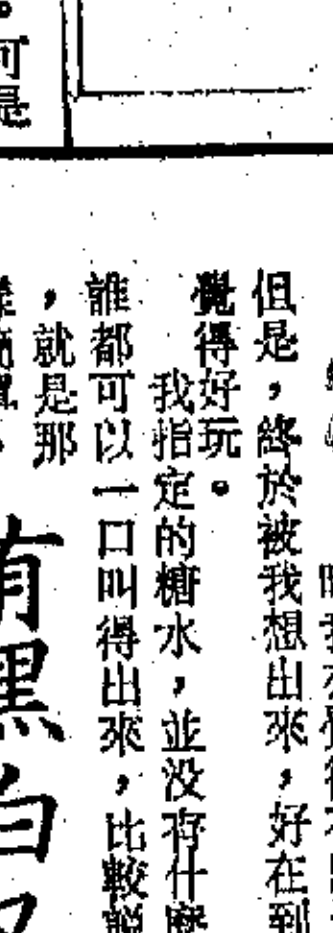 但是，終於被我想出來，好在到
覺得好玩。
我指定的糖水，並没存什麼
誰都可以一口叫得出來，比較
，就是那
有黑白
可是